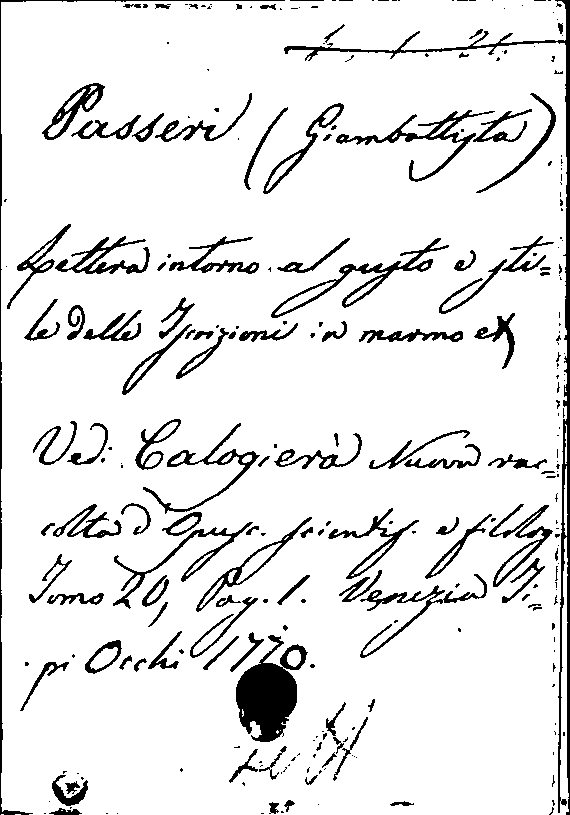 1. 21.
Passeri (Giambattista)
Lettera intorno al gusto e sti=
le delle Iscrizioni in marmo
Vedi Calogierà Nuova rac=
colta d'Opusc. scientif. e filolog.
Tomo 20, Pag. 1. Venezia Ti=
pi Occhi 1770.